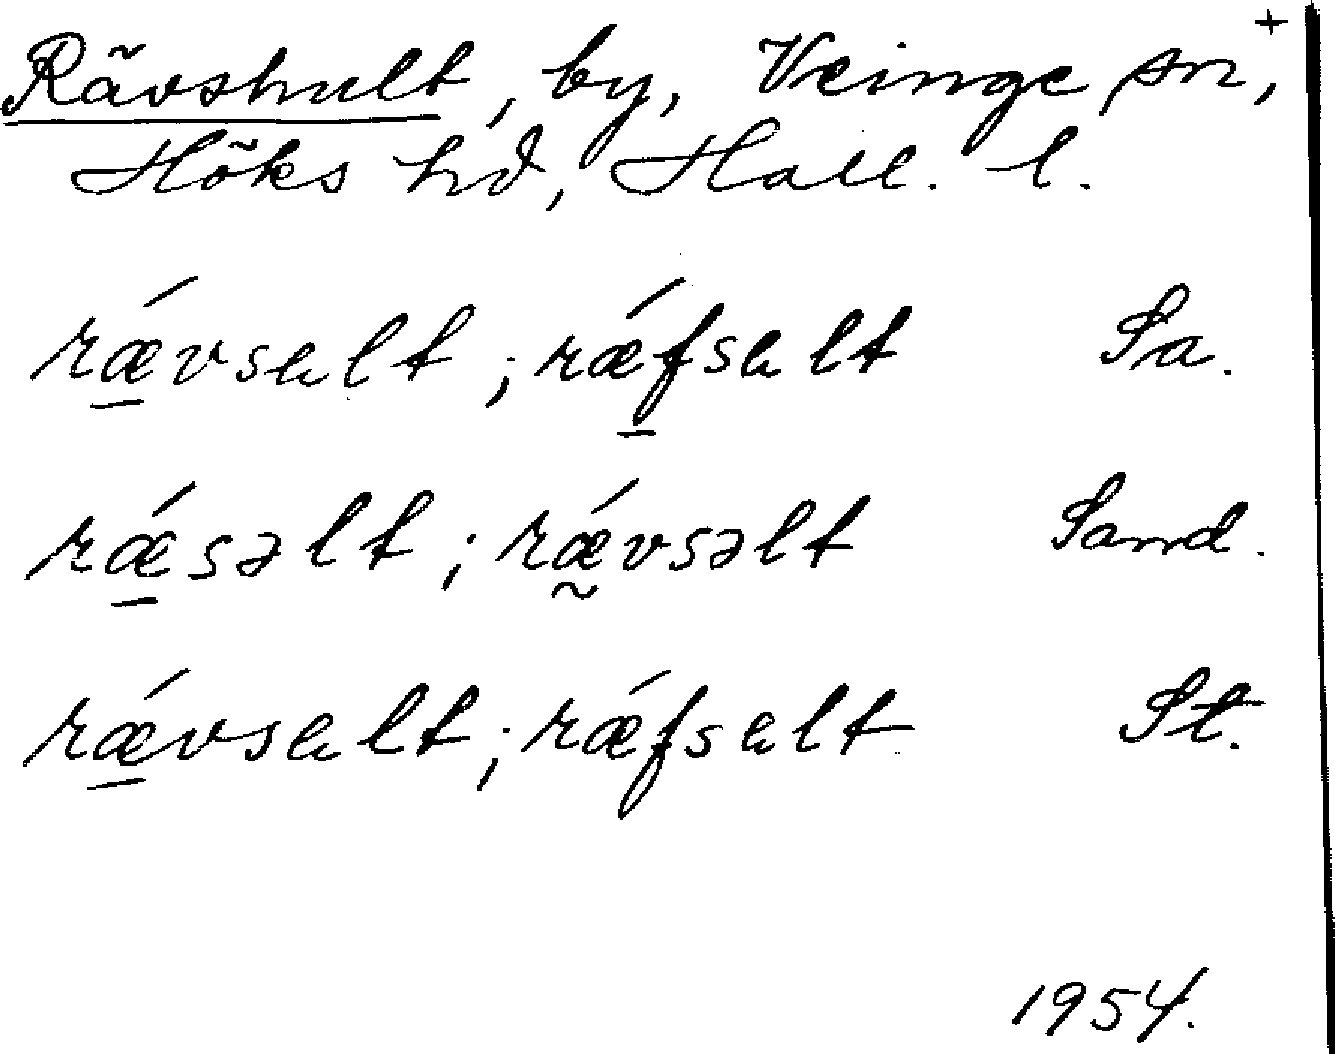 +
Rävshult, by, Veinge sn,
Höks hd, Hall. l.
rǽ̱vsɐlt; rǽ̱fsɐlt Sa.
rǽ̱səlt; rǽ̰vsəlt Sand.
rǽ̱vsɐlt; rǽfsɐlt St.
1954.